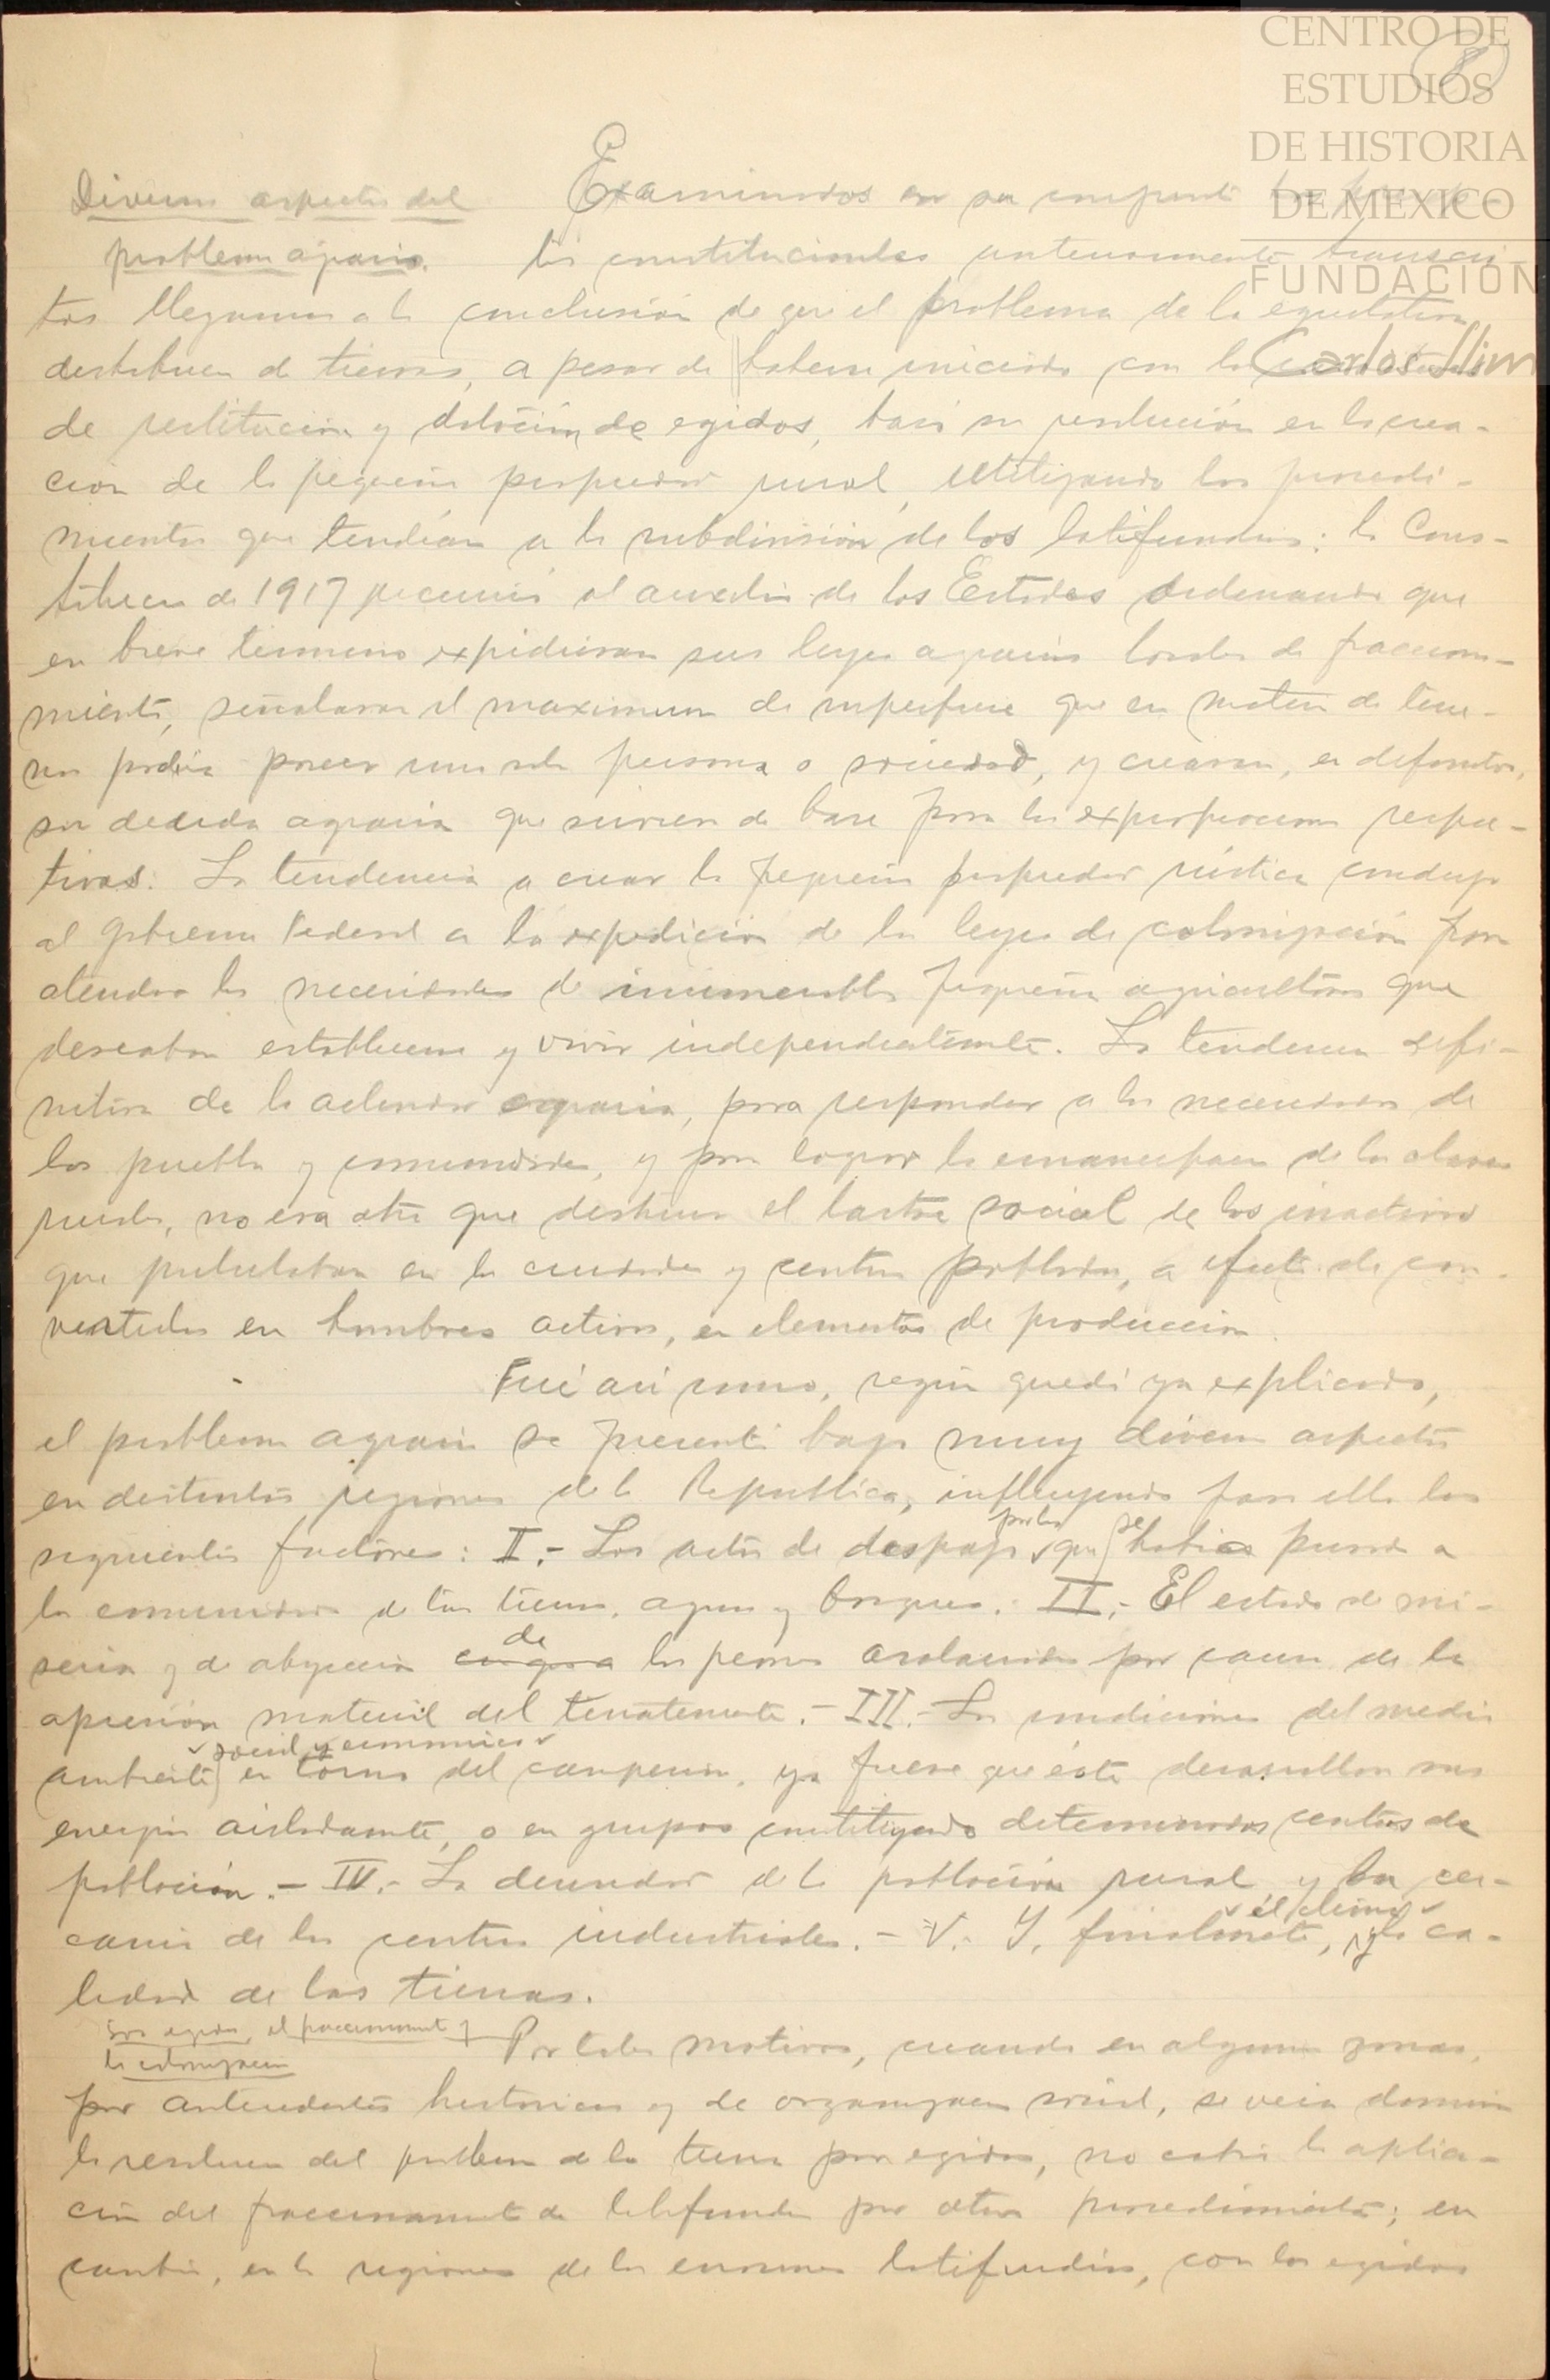 CENTRO DE
ESTUDIOS
DE HISTORIA
DE MEXICO
FUNDACION
Carlos Slim
8
Diversos aspectos del
problema agrario.
Examinados en su conjunto los
tos constitucionales anteriormente transcri-
tos llegamos a la conclusión de que el problema de la equitativa
distribucion de tierras, a pesar de haberse iniciado con los
de restitución y dotación de egidos, basó su resolución en la crea-
ción de la pequeña propiedad rural, utilizando los procedi-
mientos que tendían a la subdivisión de los latifundios: la Cons-
titucion de 1917 recurrió al auxilio de los Estados ordenando que
en breve termino expidieran sus leyes agrarias locales de fracciona-
miento, señalaran el maximum de superficie que en materia de terre-
nos podía poseer una sola persona o sociedad, y crearan, en definitiva,
su deuda agraria que sirviera de base para las expropiaciones respec-
tivas. La tendencia a crear la pequeña propiedad rústica condujo
al Gobierno Federal a la expedición de la leyes de colonización para
atender las necesidades de innumerables pequeños agricultores que
deseaban establecerse y vivir independientemente. La tendencia defi-
nitiva de la actividad agraria, para responder a las necesidades de
los pueblos y comunidades, y para lograr la emancipacion de las clases
rurales, no era otra que destruir el lastre social de los inactivos
que pululaban en las ciudades y centros poblados, a efecto de con-
vertirlos en hombres activos, en elementos de producción.
Fué así como, según quedó ya explicado,
el problema agrario se presentó bajo muy diversos aspectos
en distintas regiones de la República, influyendo para ello los
siguientes factores: I.- Los actos de despojo por los que se había privado a
las comunidades de sus tierras, aguas y bosques. II.- El estado de mi-
seria y de abyección de los peones esclavizados por causa de la
opresión material del terrateniente.- III.- Las condiciones del medio
ambiente social y economico en torno del campesino, ya fuese que éste desarrollara sus
energías aisladamente, o en grupos constituyendo determinados centros de
población.- IV.- La densidad de la población rural y la cer-
canía de los centros industriales.- V.- Y, finalmente, el clima y la ca-
lidad de las tierras.
Los egidos, el fraccionamiento y
la colonizacion
Por tales motivos, cuando en algunas zonas,
por antecedentes historicos y de organizacion social, se veía dominar
la resolucion del problema de la tierra por egidos, no cabía la aplica-
ción del fraccionamiento de latifundios por otros procedimientos; en
cambio, en las regiones de los enormes latifundios, con los egidos